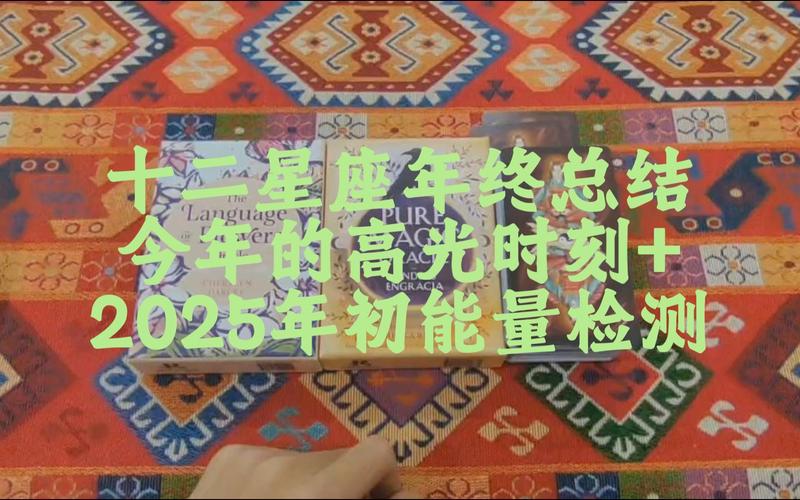 十二星座年终总结
今年的高光时刻+
2025年初能量检测
The
Language
PURE
ENGRACIA